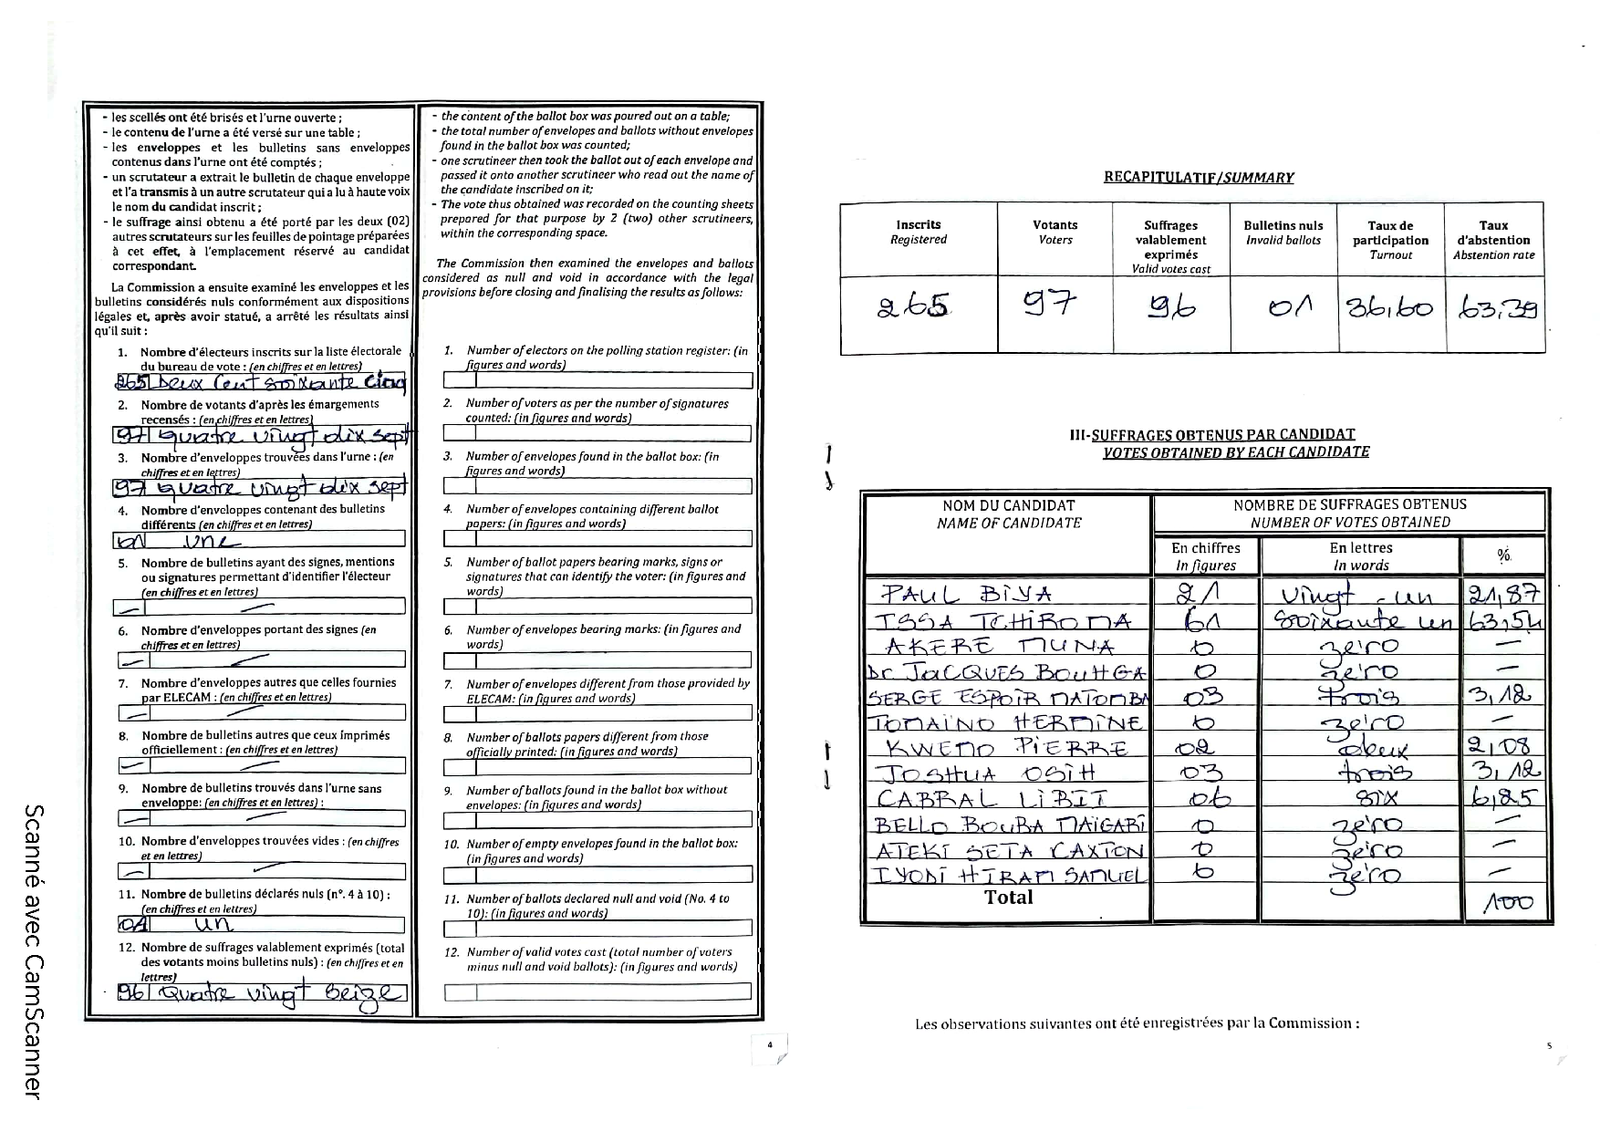 - les scellés ont été brisés et l'urne ouverte ;
- le contenu de l'urne a été versé sur une table ;
- les enveloppes et les bulletins sans enveloppes
contenus dans l'urne ont été comptés ;
- un scrutateur a extrait le bulletin de chaque enveloppe
et l'a transmis à un autre scrutateur qui a lu à haute voix
le nom du candidat inscrit ;
- le suffrage ainsi obtenu a été porté par les deux (02)
autres scrutateurs sur les feuilles de pointage préparées
à cet effet, à l'emplacement réservé au candidat
correspondant.
La Commission a ensuite examiné les enveloppes et les
bulletins considérés nuls conformément aux dispositions
légales et, après avoir statué, a arrêté les résultats ainsi
qu'il suit :
1. Nombre d'électeurs inscrits sur la liste électorale
du bureau de vote : (en chiffres et en lettres)
265 Deux Cent Soixante Cinq
2. Nombre de votants d'après les émargements
recensés : (en chiffres et en lettres)
97 quatre vingt dix sept
3. Nombre d'enveloppes trouvées dans l'urne : (en
chiffres et en lettres)
97 quatre vingt dix sept
4. Nombre d'enveloppes contenant des bulletins
différents (en chiffres et en lettres)
01 une
5. Nombre de bulletins ayant des signes, mentions
ou signatures permettant d'identifier l'électeur
(en chiffres et en lettres)
— —
6. Nombre d'enveloppes portant des signes (en
chiffres et en lettres)
— —
7. Nombre d'enveloppes autres que celles fournies
par ELECAM : (en chiffres et en lettres)
— —
8. Nombre de bulletins autres que ceux imprimés
officiellement : (en chiffres et en lettres)
— —
9. Nombre de bulletins trouvés dans l'urne sans
enveloppe: (en chiffres et en lettres) :
— —
10. Nombre d'enveloppes trouvées vides : (en chiffres
et en lettres)
— —
11. Nombre de bulletins déclarés nuls (n°. 4 à 10) :
(en chiffres et en lettres)
01 un
12. Nombre de suffrages valablement exprimés (total
des votants moins bulletins nuls) : (en chiffres et en
lettres)
96 Quatre vingt Seize
- the content of the ballot box was poured out on a table;
- the total number of envelopes and ballots without envelopes
found in the ballot box was counted;
- one scrutineer then took the ballot out of each envelope and
passed it onto another scrutineer who read out the name of
the candidate inscribed on it;
- The vote thus obtained was recorded on the counting sheets
prepared for that purpose by 2 (two) other scrutineers,
within the corresponding space.
The Commission then examined the envelopes and ballots
considered as null and void in accordance with the legal
provisions before closing and finalising the results as follows:
1. Number of electors on the polling station register: (in
figures and words)
2. Number of voters as per the number of signatures
counted: (in figures and words)
3. Number of envelopes found in the ballot box: (in
figures and words)
4. Number of envelopes containing different ballot
papers: (in figures and words)
5. Number of ballot papers bearing marks, signs or
signatures that can identify the voter: (in figures and
words)
6. Number of envelopes bearing marks: (in figures and
words)
7. Number of envelopes different from those provided by
ELECAM: (in figures and words)
8. Number of ballots papers different from those
officially printed: (in figures and words)
9. Number of ballots found in the ballot box without
envelopes: (in figures and words)
10. Number of empty envelopes found in the ballot box:
(in figures and words)
11. Number of ballots declared null and void (No. 4 to
10): (in figures and words)
12. Number of valid votes cast (total number of voters
minus null and void ballots): (in figures and words)
4
Scanné avec CamScanner
RECAPITULATIF/SUMMARY
Inscrits Votants Suffrages Bulletins nuls Taux de Taux
Registered Voters valablement Invalid ballots participation d'abstention
exprimés Turnout Abstention rate
Valid votes cast
265 97 96 01 36,60 63,39
III-SUFFRAGES OBTENUS PAR CANDIDAT
VOTES OBTAINED BY EACH CANDIDATE
NOM DU CANDIDAT NOMBRE DE SUFFRAGES OBTENUS
NAME OF CANDIDATE NUMBER OF VOTES OBTAINED
En chiffres En lettres %
In figures In words
PAUL BIYA 21 Vingt - un 21,87
ISSA TCHIROMA 61 Soixante un 63,54
AKERE MUNA 0 zéro —
Dr JACQUES BOUHGA 0 zéro —
SERGE ESPOIR MATOMBA 03 trois 3,12
TOMAINO HERMINE 0 zéro —
KWEMO PIERRE 02 deux 2,08
JOSHUA OSIH 03 trois 3,12
CABRAL LIBII 06 six 6,25
BELLO BOUBA MAIGARI 0 zéro —
ATEKI SETA CAXTON 0 zéro —
IYODI HIRAM SAMUEL 0 zéro —
Total 100
Les observations suivantes ont été enregistrées par la Commission :
5